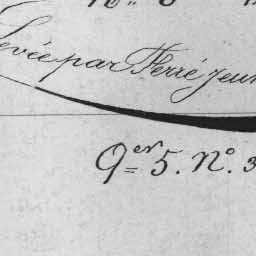 Levée par Ferré Jeu
Qer 5. N° 3